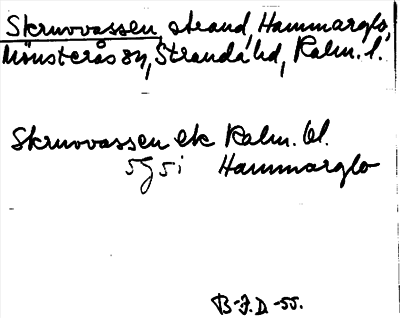 Skruvvassen, strand, Hammarglo,
Mönsterås sn, Stranda hd, Kalm. l.
Skruvvassen ek Kalm. bl.
5g5i Hammarglo
B-J.D -55.